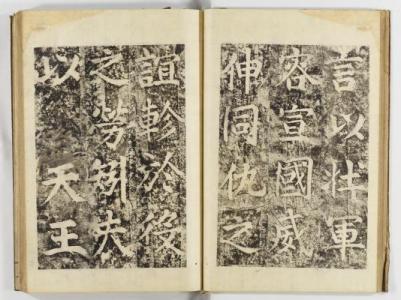 言以壮軍
容宣國威
伸同仇之
誼軫於役
之勞矧夫
以天王